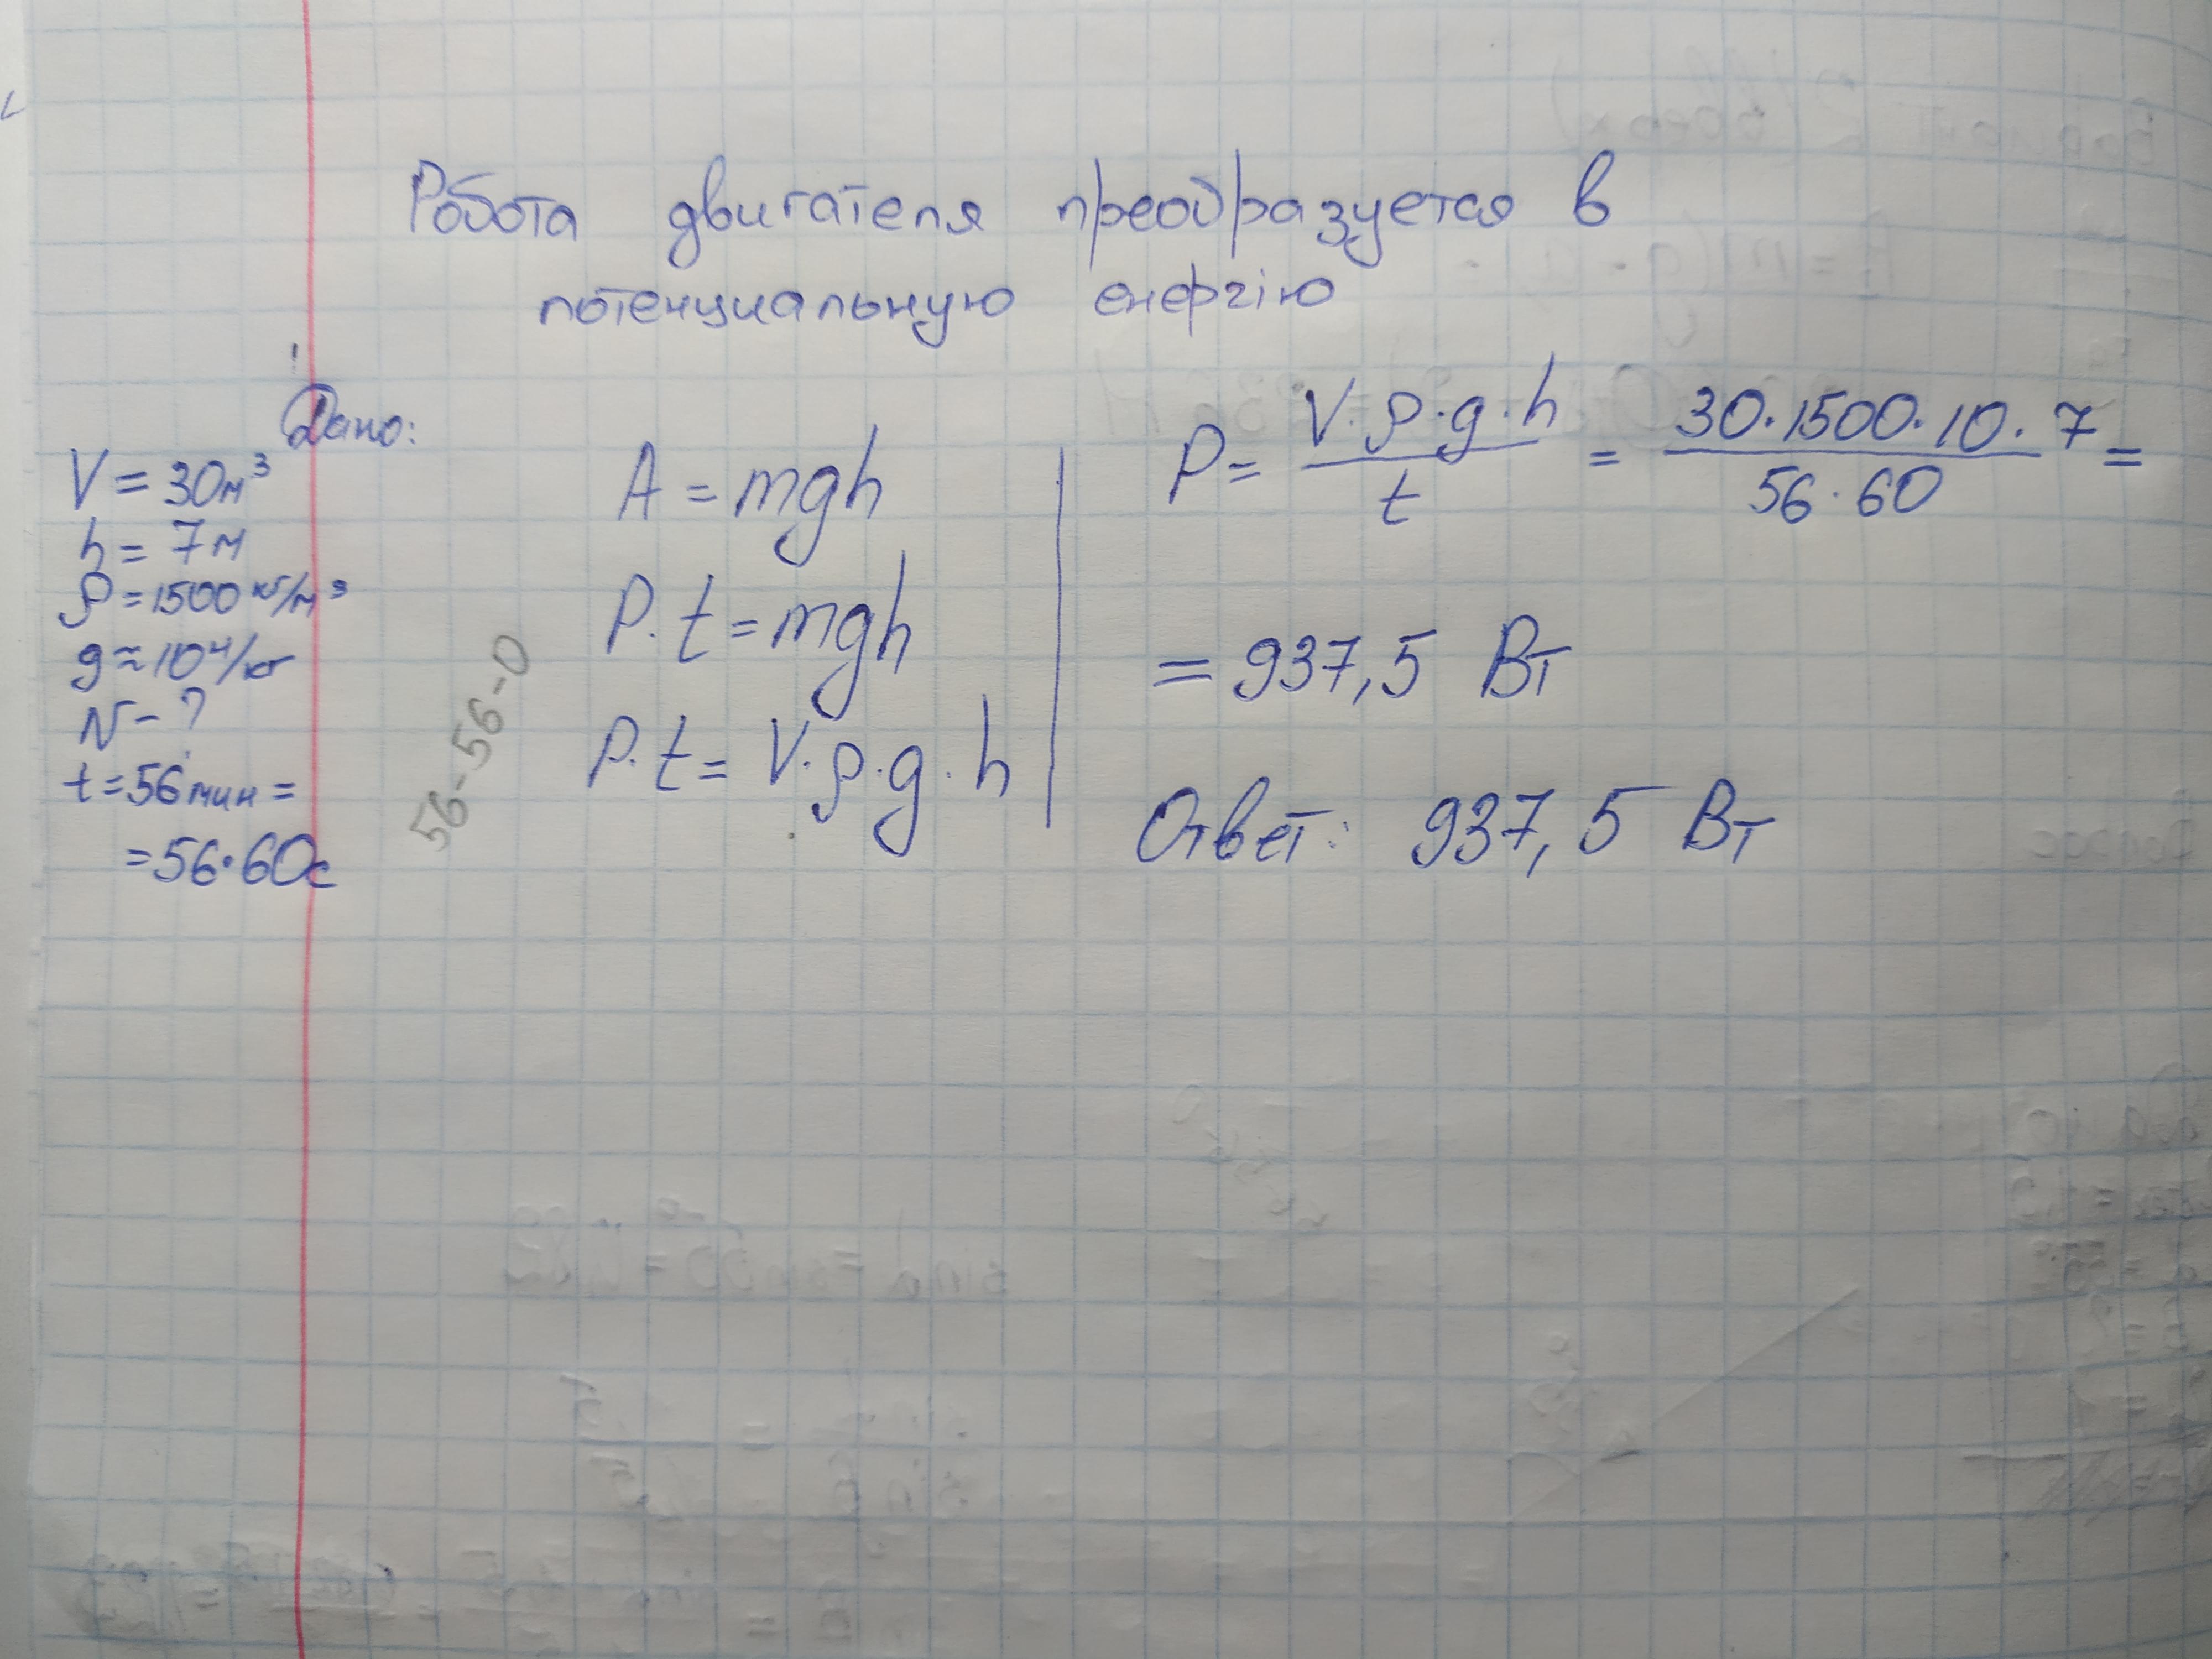 Робота двигателя преобразуется в
потенциальную енергію
Дано:
V = 30м³
h = 7м
ρ = 1500 кг/м³
g ≈ 10 Н/кг
N - ?
t = 56 мин =
= 56·60с
56-56-0
A = mgh
P·t = mgh
P·t = V·ρ·g·h
P = V·ρ·g·h / t = 30·1500·10·7 / 56·60 =
= 937,5 Вт
Ответ: 937,5 Вт